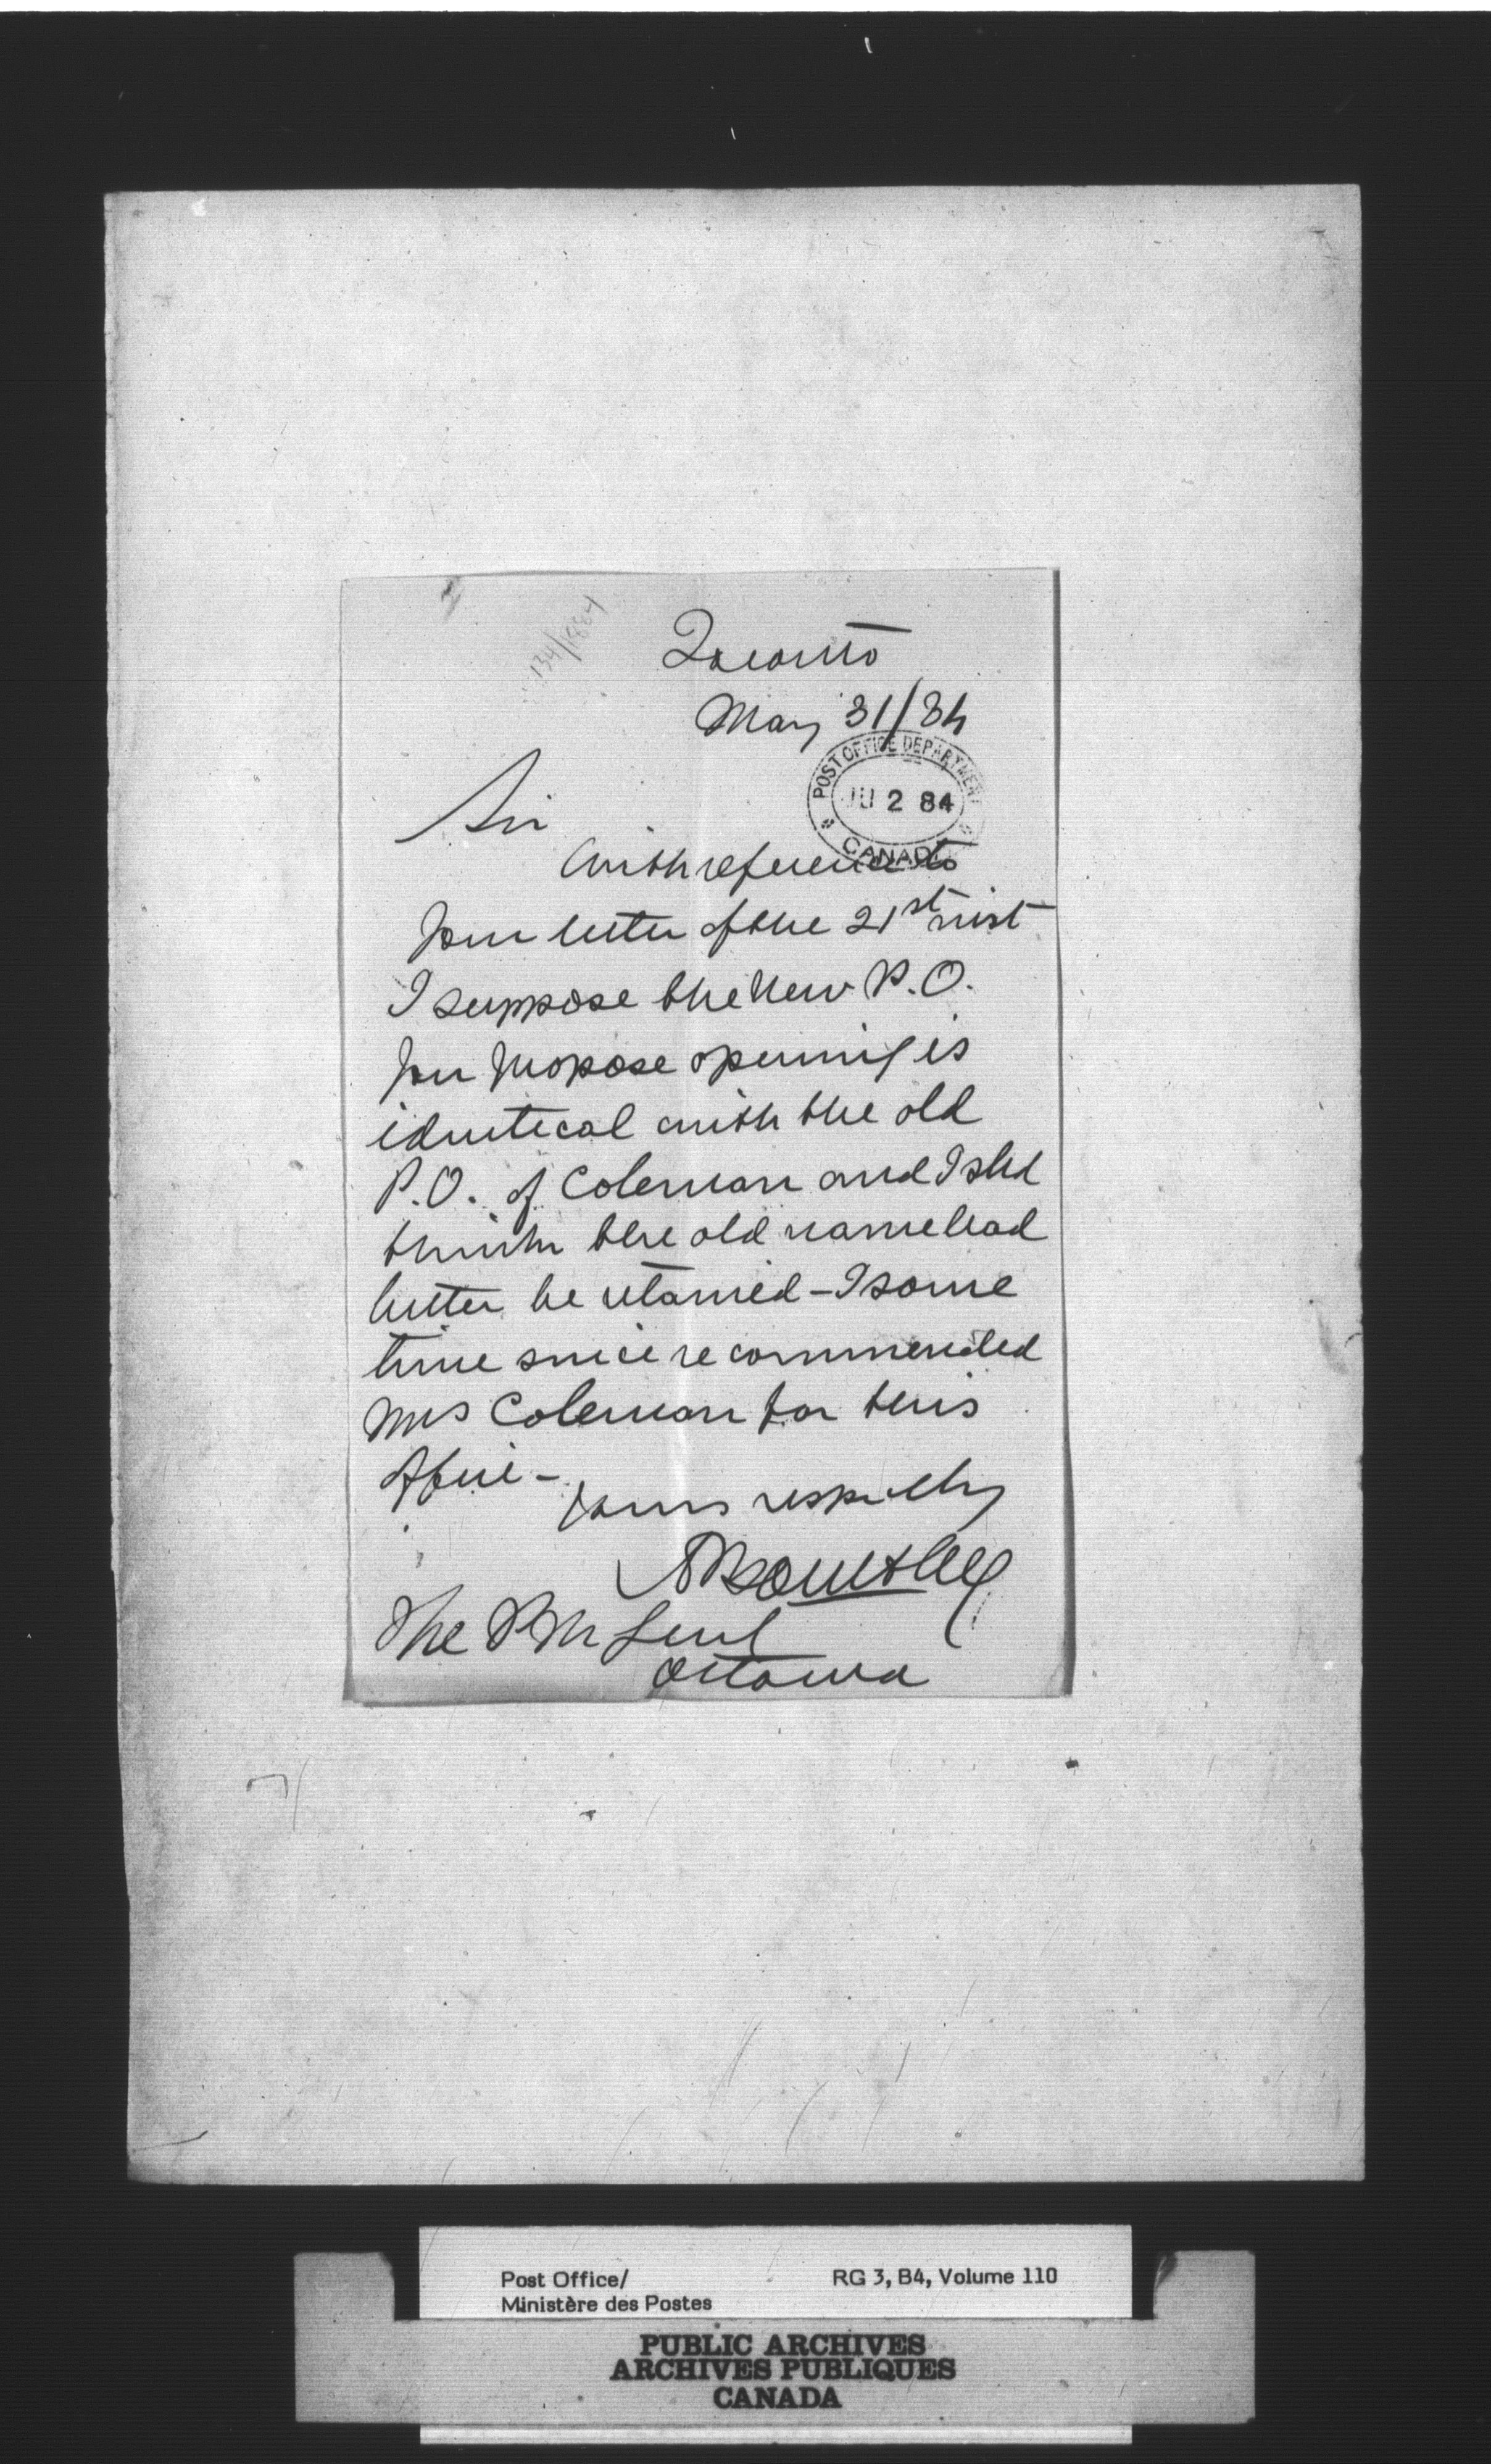 134/1884
Toronto
May 31/84
POST OFFICE DEPARTMENT
JU 2 84
CANADA
Sir
With reference to
your letter of the 21st inst
I suppose the New P.O.
you propose opening is
identical with the old
P.O. of Coleman and I shd
think the old name had
better be retained - I some
time since recommended
Mrs Coleman for this
Office -
Yours respectly
The P M Genl
Ottawa
Post Office/
Ministère des Postes
RG 3, B4, Volume 110
PUBLIC ARCHIVES
ARCHIVES PUBLIQUES
CANADA